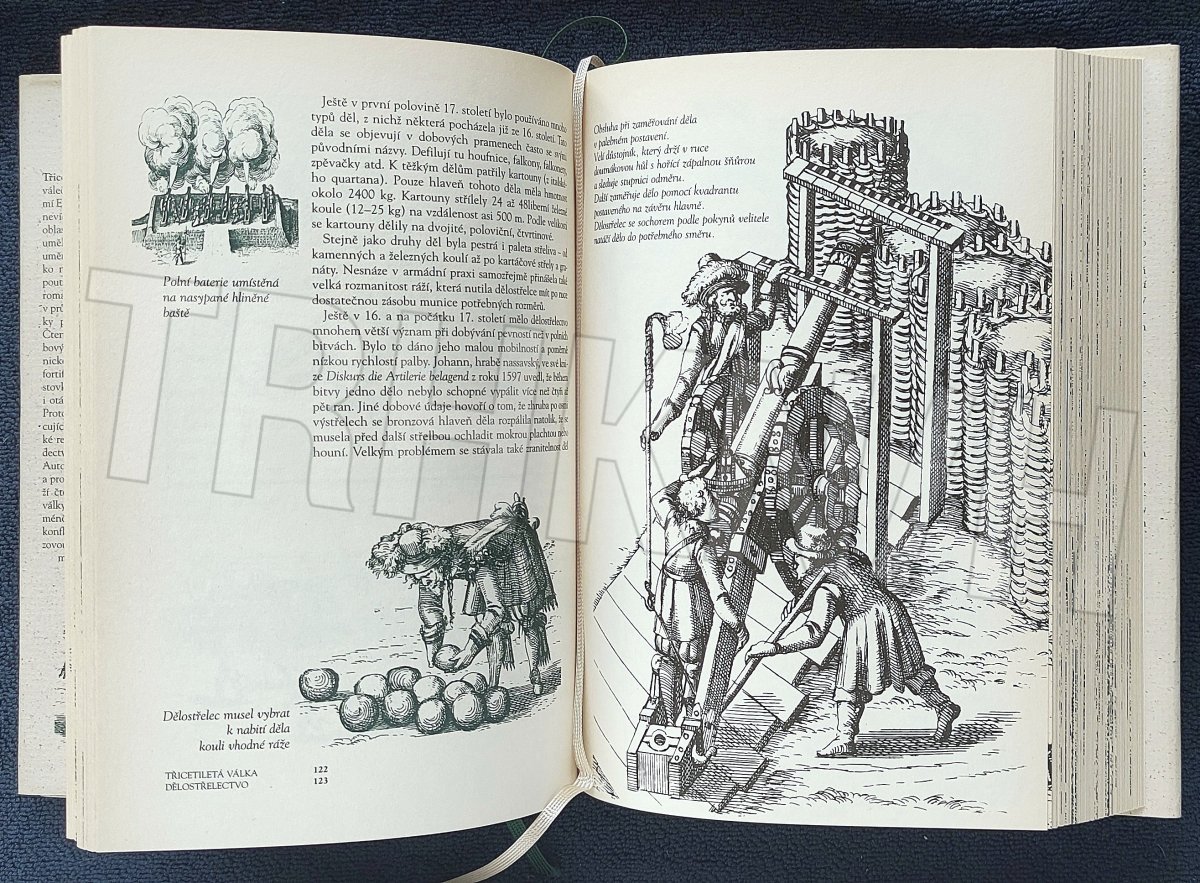 Ještě v první polovině 17. století bylo používáno mnoho
typů děl, z nichž některá pocházela již ze 16. století. Tato
děla se objevují v dobových pramenech často se svými
původními názvy. Defilují tu houfnice, falkony, falkonety,
zpěvačky atd. K těžkým dělům patřily kartouny (z italské-
ho quartana). Pouze hlaveň tohoto děla měla hmotnost
okolo 2400 kg. Kartouny střílely 24 až 48liberní železné
koule (12–25 kg) na vzdálenost asi 500 m. Podle velikosti
se kartouny dělily na dvojité, poloviční, čtvrtinové.
Stejně jako druhy děl byla pestrá i paleta střeliva – od
kamenných a železných koulí až po kartáčové střely a gra-
náty. Nesnáze v armádní praxi samozřejmě přinášela také
velká rozmanitost ráží, která nutila dělostřelce mít po ruce
dostatečnou zásobu munice potřebných rozměrů.
Ještě v 16. a na počátku 17. století mělo dělostřelectvo
mnohem větší význam při dobývání pevností než v polních
bitvách. Bylo to dáno jeho malou mobilností a poměrně
nízkou rychlostí palby. Johann, hrabě nassavský, ve své kni-
ze Diskurs die Artilerie belagend z roku 1597 uvedl, že během
bitvy jedno dělo nebylo schopné vypálit více než čtyři až
pět ran. Jiné dobové údaje hovoří o tom, že zhruba po osmi
výstřelech se bronzová hlaveň děla rozpálila natolik, že se
musela před další střelbou ochladit mokrou plachtou nebo
houní. Velkým problémem se stávala také zranitelnost děl
Polní baterie umístěná
na nasypané hliněné
baště
Dělostřelec musel vybrat
k nabití děla
kouli vhodné ráže
TŘICETILETÁ VÁLKA
DĚLOSTŘELECTVO
122
123
Obsluha při zaměřování děla
v palebném postavení.
Velí důstojník, který drží v ruce
doutnákovou hůl s hořící zápalnou šňůrou
a sleduje stupnici odměru.
Další zaměřuje dělo pomocí kvadrantu
postaveného na závěru hlavně.
Dělostřelec se sochorem podle pokynů velitele
natáčí dělo do potřebného směru.